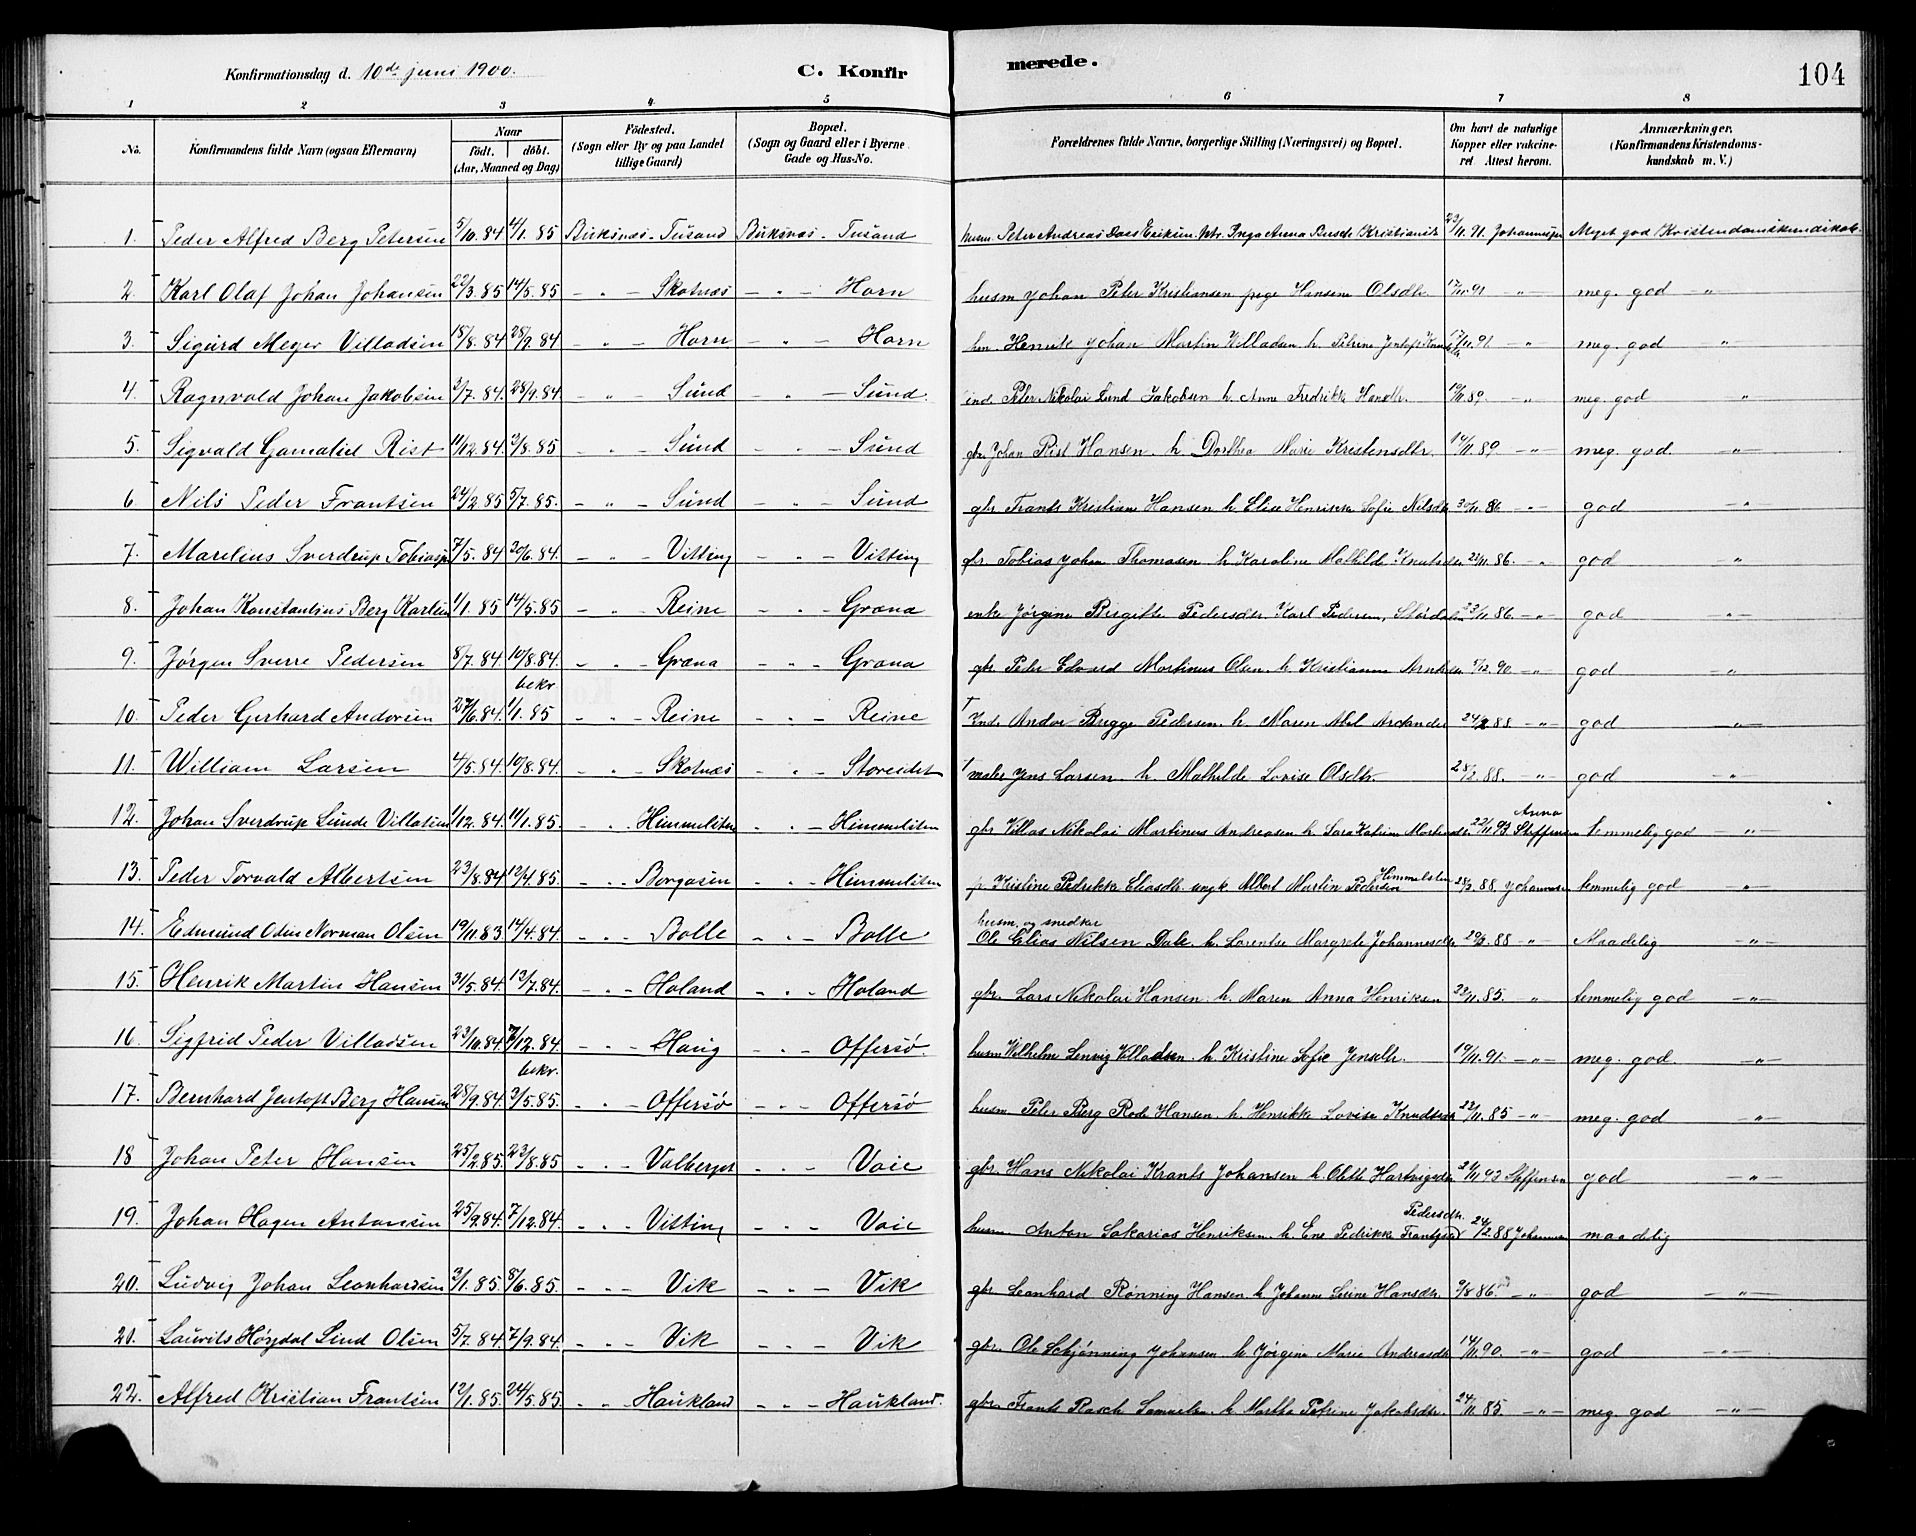 Konfirmationsdag d. 10de juni 1900. C. Konfirmerede. 104
1 2 3 4 5 6 7 8
No. Konfirmandens fulde Navn (ogsaa Efternavn) Naar födt. döbt. (Aar, Maaned og Dag) Födested. (Sogn eller By og paa Landet tillige Gaard) Bopæl. (Sogn og Gaard eller i Byerne Gade og Hus-No. Forældrenes fulde Navne, borgerlige Stilling (Næringsvei) og Bopæl. Om havt de naturlige Kopper eller vakcineret Attest herom. Anmærkninger. (Konfirmandens Kristendomskundskab m. V.)
1. Peder Alfred Berg Petersen 5/10.84 4/1.85 Buksnæs - Tusand Buksnæs - Tusand husm. Peter Andreas Dass Eriksen. 23/11.91. Johannesen Meget god Kristendomskundskab
2. Karl Olaf Johan Johansen 22/3.85 14/5.85 - " - Skotnæs - " - Horn husm Johan Peter Kristiansen pige Hansine Olsdtr. 17/11.91 - " - meg. god "
3. Sigurd Meyer Villadsen 18/8.84 28/9.84 - " - Horn - " - Horn Johan Martin Villadsen h. Petrine Jentoft 17/11.91 - " - meg. god "
4. Ragnvald Johan Jakobsen 3/7.84. 28/9.84. - " - Sund - " - Sund. ind. Peter Nikolai Lund Jakobsen h. Anne Fredrikke Hansdtr. 19/11.89. - " - meg. god "
5. Sigvald Gamaliel Rist 11/12.84. 3/8.85 - " - Sund - " - Sund gbr. Johan Rist Hansen. h. Dorthea Marie Kristensdtr. 19/11.89 - " - meg. god - " -
6. Nils Peder Frantsen 24/2.85 5/7.85. - " - Sund - " - Sund gbr. Frants Kristian Hansen h. Elise Henrikke Sofie Nilsdtr 30/11.86. - " - god - " -
7. Marelius Sverdrup Tobiasen 7/5.84 20/6.84. - " - Vitting - " - Vitting gbr. Tobias Johan Thomasen h. Karoline Mathilde Knutsdtr 22/11.86. - " god "
8. Johan Konstantius Berg Karlsen 1/1.85 14/5.85 - " - Reine - " - Græna enke Jörgine Bergitte Pedersdtr. Karl Pedersen, Stördalen 23/11.86. - " - god - " -
9. Jörgen Sverre Pedersen 8/7.84 10/8.84. - " - Græna - " - Græna gbr. Peder Edvard Martinus Olsen. h. Kristianna 1/12.90 - " - god "
bekr
10. Peder Gerhard Andorsen 27/6.84. 1/1.85 - " - Reine - " - Reine † Ind. Andor Brygge Pedersen. h. Maren Abel 24/2.88 - " - god " -
11. William Larsen 4/5.84. 10/8.84. - " - Skotnæs - " - Storeidet † maler Jens Larsen. h. Mathilde Lovise Olsdtr. 28/2.88. - " - god - " -
12. Johan Sverdrup Lunde Villatsen 1/12.84. 11/1.85. - " - Himmelsten - " - Himmelsten gbr. Villas Nikolai Martinus Andreasen h. Sara Katrine 22/11.93 Anna Steffensen temmelig god - " -
13. Peder Torvald Albertsen 23/8.84 12/4.85. - " - Borgåsen - " - Himmelsten p. Kristine Pedrikke Eliasdtr. ungk. Albert Martin Pedersen Himmelsten 28/3.88. Johannesen temmelig god - " -
husm. og snedker
14. Edmund Odin Norman Olsen 19/11.83 14/4.84. - " - Bolle - " - Bolle Ole Elias Nilsen Dale. h. Lorentse Margrete Johannesdtr 20/3.88 - " - Maadelig - " -
15. Henrik Martin Hansen 31/5.84. 13/7.84. - " - Holand - " - Holand gbr. Lars Nikolai Hansen. h. Maren Anna Henriksen 22/11.85. " temmelig god - " -
16 Sigfrid Peder Villadsen 23/10.84. 7/12.84. - " - Haug - " - Offersø. husm Wilhelm Lenvig Villadsen. h. Kristine Sofie Jensdtr. 19/11.91. - " - meg. god. - " -
bekr.
17. Bernhard Jentoft Berg Hansen 28/9.84. 3/5.85. - " - Offersø - " - Offersø husm. Peter Berg Rode Hansen. h. Henrikke Lovise Knudsdtr 22/11.85 - " - meg. god - " -
18 Johan Peter Hansen 25/2.85. 23/8.85 - " - Valberget - " - Voie gbr. Hans Nikolai Krants Johansen h. Olette Hartvigsdtr 24/11.93 Steffensen god - " -
19. Johan Hagen Antonsen 25/9.84. 7/12.84. - " - Vitting - " - Voie husm Anton Sakarias Henriksen. h. Ene Pedrikke Pedersdtr. 24/2.88 Johannesen maadelig
20. Ludvig Johan Leonhardsen 3/1.85. 8/6.85. - " - Vik - " - Vik gbr Leonhard Rønning Hansen h. Johanna Hansdtr 9/8 86. - " - god - " -
20. Laurits Høydal Lind Olsen 5/7.84. 7/9.84. - " - Vik - " - Vik gbr. Ole Schjønning Johansen h. Jørgine Marie Andreasdtr 14/11.90. - " - god - " -
22. Alfred Kristian Frantsen 12/1.85. 24/5.85. - " - Haukland - " - Haukland. gbr. Frants Rasch Samuelsen. h. Martha Petrine Jakobsdtr. 24/11.85. - " - meg. god - " -